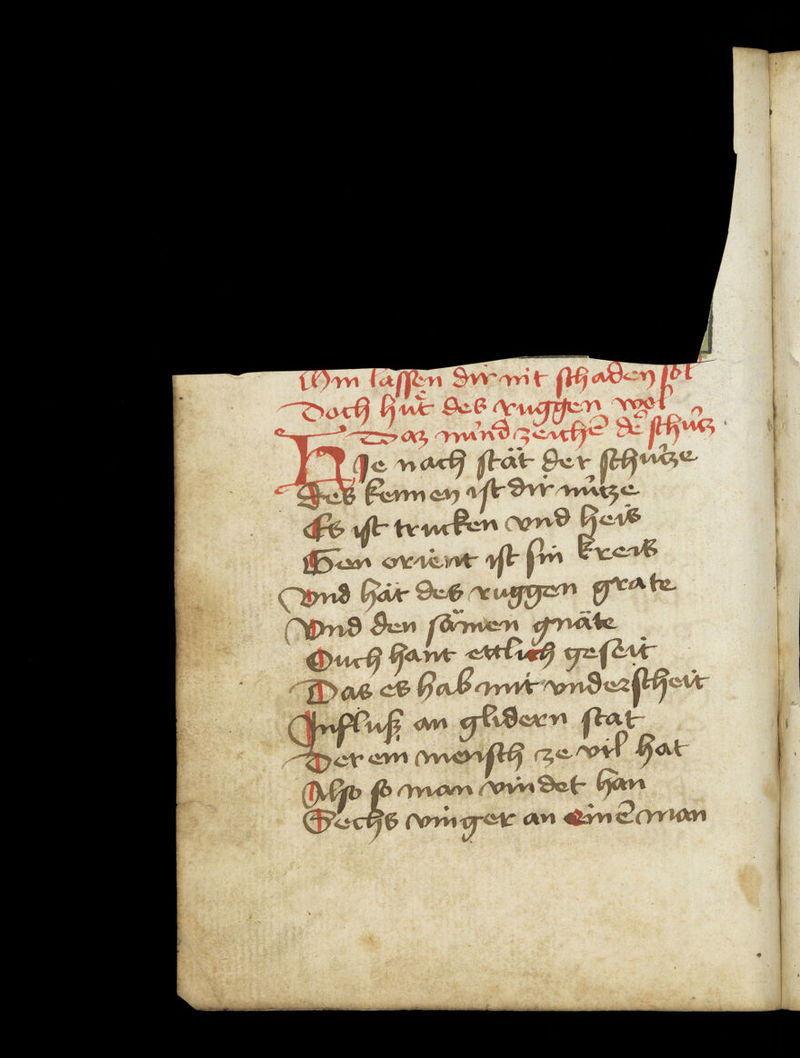 Din lassen dir nit schaden sol
Doch huͤt des ruggen wol
Daz nu̇nd zeichē dˢ schu̇tz
Hie nach stät der schu̇tze
Des kennen ist dir nu̇tze
Es ist trucken vnd heis
Gen orient ist sin kreis
Vnd hät des ruggen grate
Vnd den sämen gnäte
Ouch hant ettlich geseit
Das es hab mit vnderscheit
Influß an glidern stat
Der ein mensch ze vil hat
Also so man vindet han
Sechs vinger an einē man